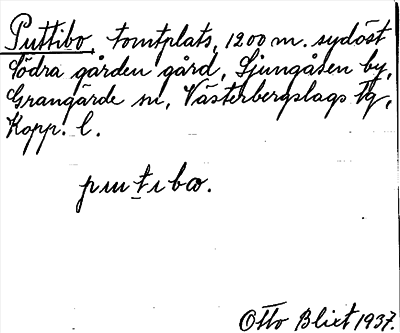 Puttibo, tomtplats, 1200 m. sydöst
Södra gården gård, Ljungåsen by,
Grangärde sn, Västerbergslags tg,
Kopp. l.
puttibo.
Otto Blixt 1937.